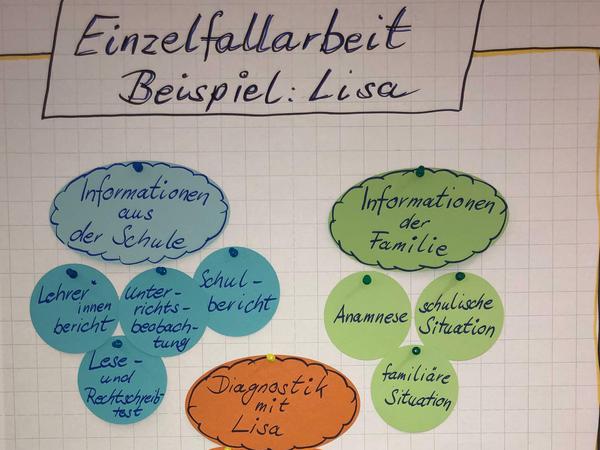 Einzelfallarbeit
Beispiel: Lisa
Informationen
aus
der Schule
Lehrer*
innen
bericht
Unter-
richts-
beobach-
tung
Schul-
bericht
Lese-
und
Rechtschreib-
test
Informationen
der
Familie
Anamnese
schulische
Situation
familiäre
Situation
Diagnostik
mit
Lisa